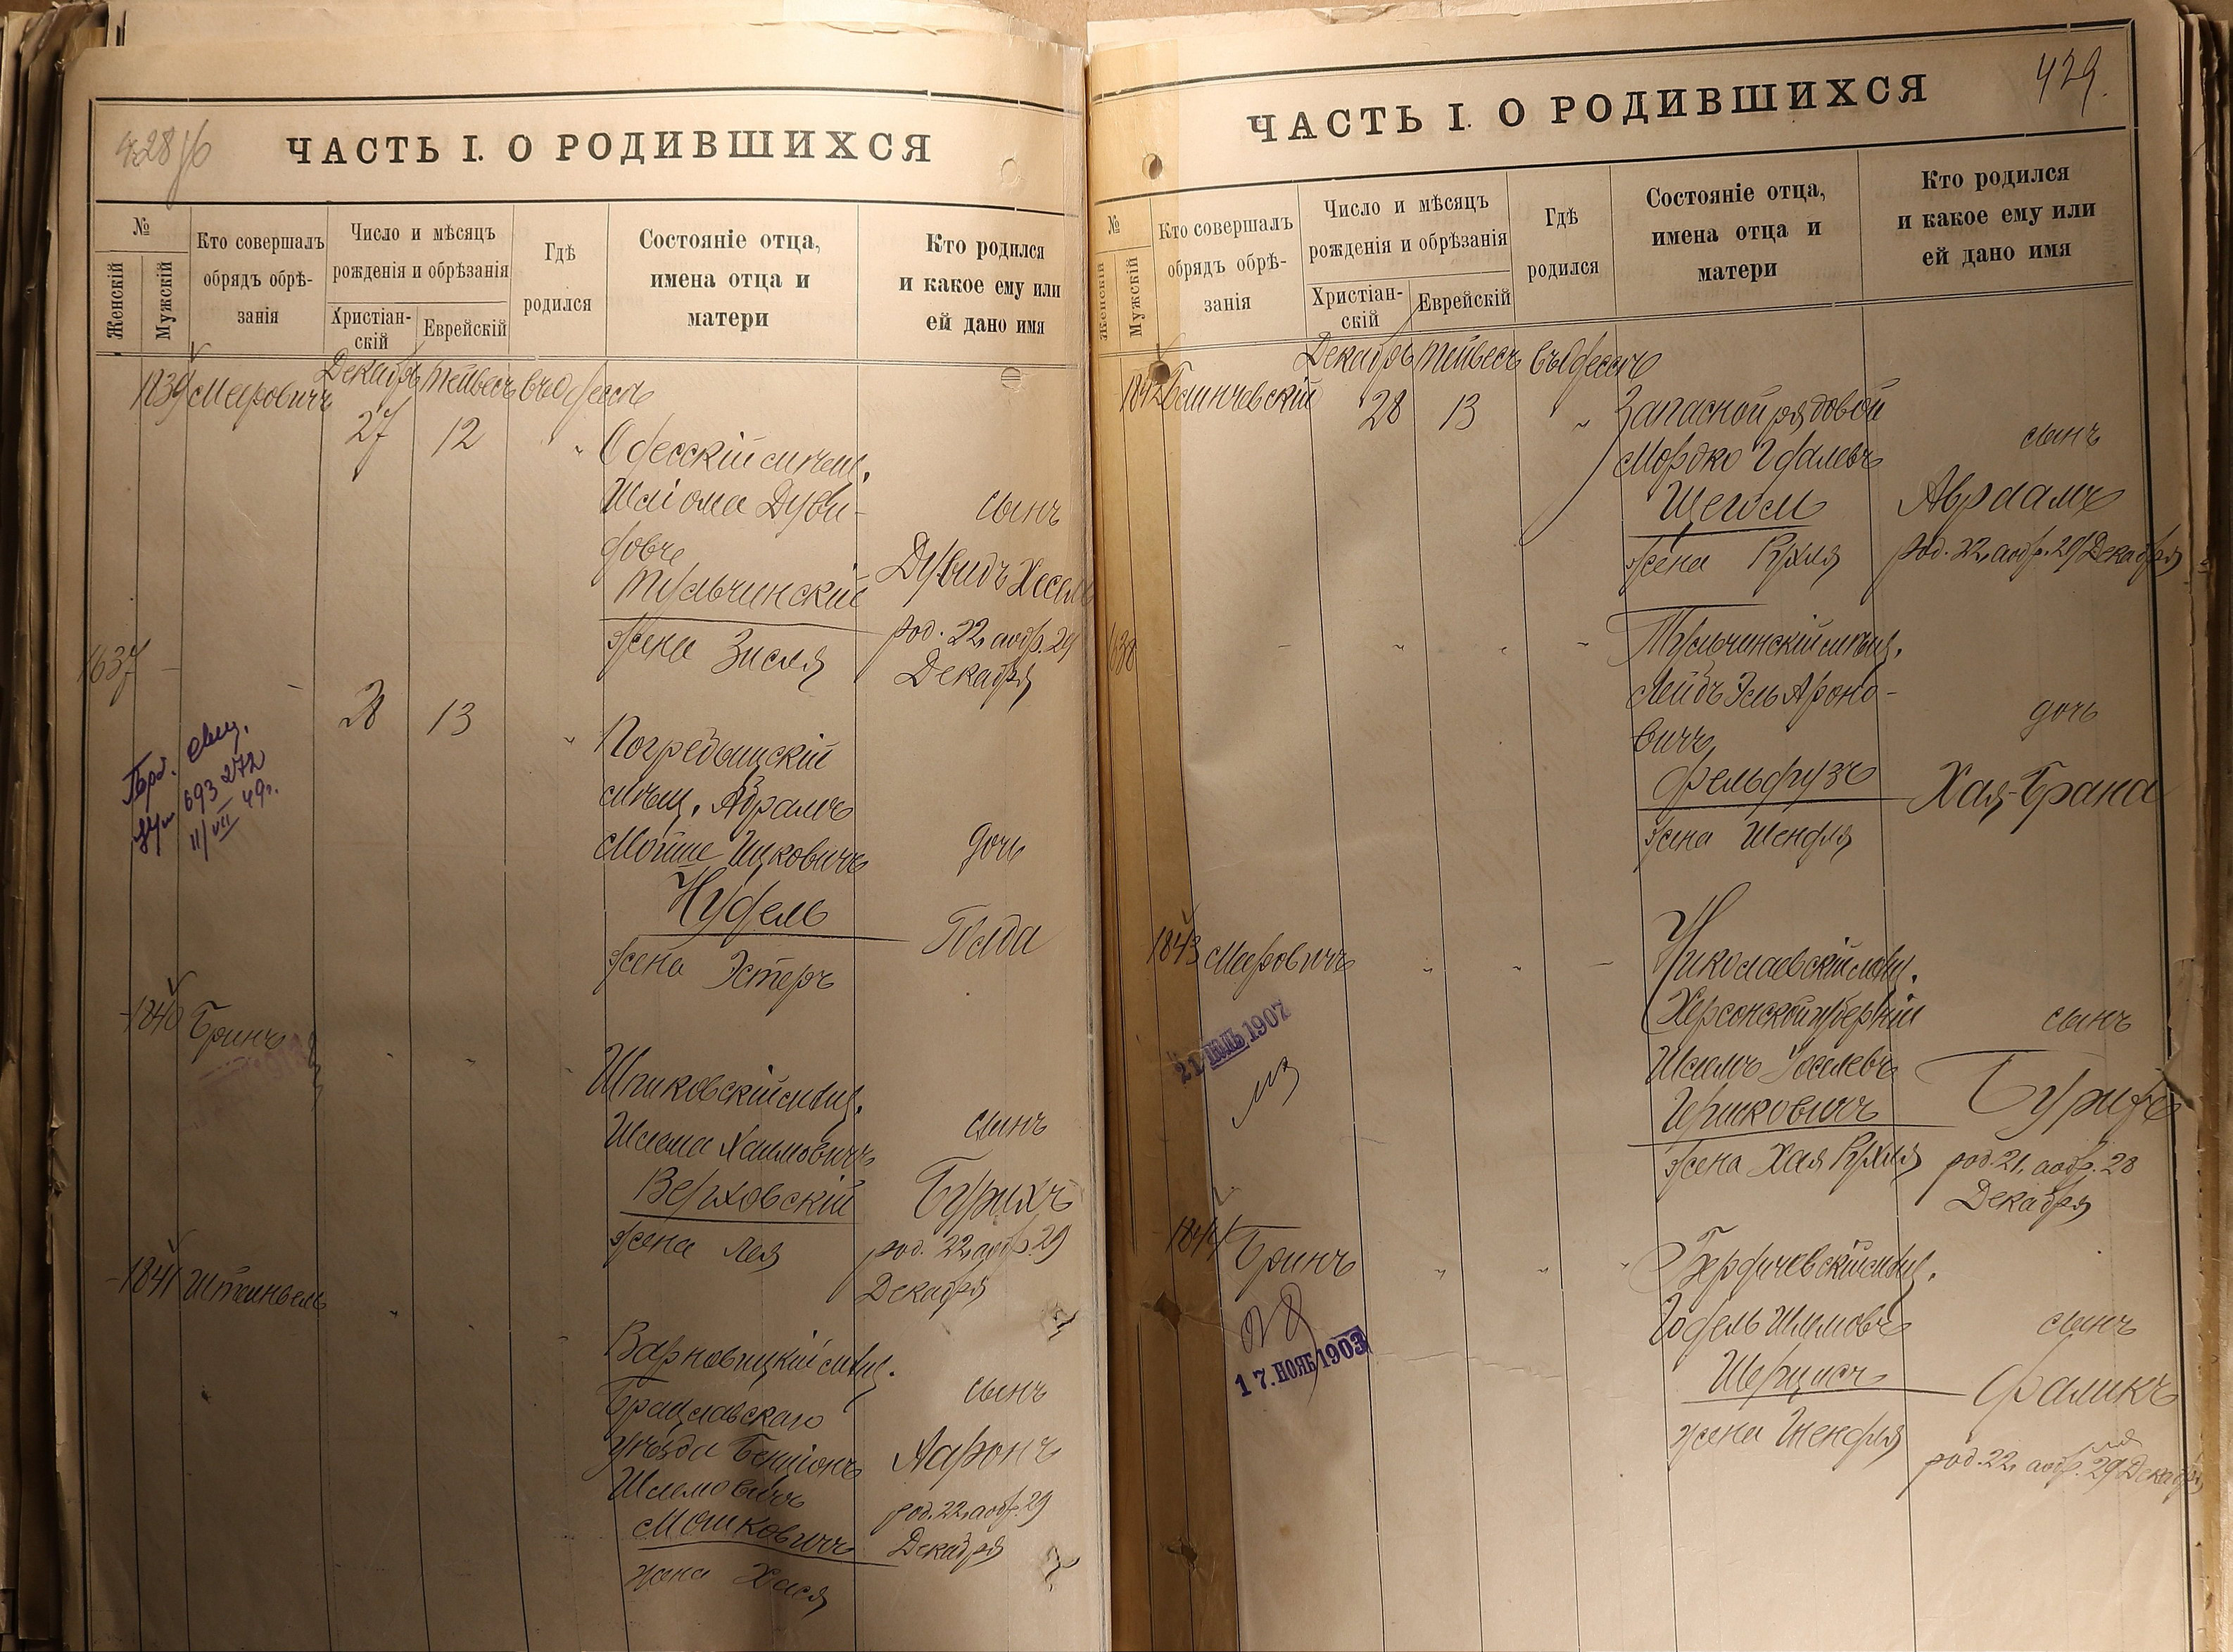 428 об
ЧАСТЬ I. О РОДИВШИХСЯ
№
Женскій
Мужскій
Кто совершалъ
обрядъ обрѣ-
занія
Число и мѣсяцъ
рожденія и обрѣзанія
Христіан-
скій
Еврейскій
Гдѣ
родился
Состояніе отца,
имена отца и
матери
Кто родился
и какое ему или
ей дано имя
1839 Меровичъ
Декабрь Тейвесъ въ Одессѣ
27 12 "
Одесскій мѣщ.
Шліома Дуви-
довъ
Тульчинскій
жена Зисля
сынъ
Дувидъ Хесель
род. 22, а обр. 29
Декабря
1637 -
28 13 "
Погребыщскій
мѣщ. Абрамъ
Мойше Ицковичъ
Нудель
жена Эстеръ
дочь
Голда
693272
11/VII 49г.
1840 Бринъ " " "
Шпиковскій мѣщ.
Шлема Хаимовичъ
Верховскій
жена Лея
сынъ
Бурихъ
род. 22, а обр. 29
Декабря
1841 Штейнвель " " "
Варновицкій мѣщ.
Брацлавскаго
уѣзда Бенціонъ
Шлемовичъ
Мошковичъ
жена Хася
сынъ
Ааронъ
род. 22, а обр. 29
Декабря
429.
ЧАСТЬ I. О РОДИВШИХСЯ
№
Женскій
Мужскій
Кто совершалъ
обрядъ обрѣ-
занія
Число и мѣсяцъ
рожденія и обрѣзанія
Христіан-
скій
Еврейскій
Гдѣ
родился
Состояніе отца,
имена отца и
матери
Кто родился
и какое ему или
ей дано имя
1842
Декабрь Тейвесъ въ Одессѣ
28 13 "
Запасной рядовой
Мордко
жена Рухля
сынъ
Авраамъ
род. 22, а обр. 29 Декабря
1638 - " " "
Тульчинскій мѣщ.
Лейбъ Эль Ароно-
вичъ
Фельдфузъ
жена Шендля
дочь
Хая-Брана
1843 Меровичъ " " "
Николаевскій мѣщ.
Херсонской губерніи
Иоселевъ
Гершковичъ
жена Хая Рухля
сынъ
Бурихъ
род. 21, а обр. 28
Декабря
21 ІЮЛЬ 1907
1844 Бринъ " " "
Бердичевскій мѣщ.
Шлемовъ
жена Шендля
сынъ
Фаликъ
род. 22, а обр. 29 Декабря
17. НОЯБ 1903